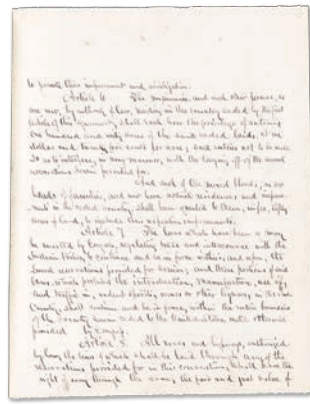 to punish their imprisonment and
Article 6. The and such other persons, as
are now, by authority of law, residing in the country ceded by the first
article of this agreement shall each have the privilege of entering
one hundred and sixty acres of the said ceded lands, at one
dollar and twenty five cents per acre; and entries not to be made
so as to interfere, in any manner, with the laying off of the several
reservations herein provided for.
And such of the mixed bloods, as are
heads of families, and now have actual residences and improve-
ments in the ceded country, shall have granted to them, in fee, eighty
acres of land, to include their respective improvements.
Article 7. The laws which have been or may
be enacted by Congress, regulating trade and intercourse with the
Indian tribes, to continue and be in force within, and upon, the
several reservations provided for herein; and those portions of said
laws which prohibit the introduction, manufacture, use of,
and traffic in, ardent spirits, wines or other liquors, in the Indian
Country, shall continue and be in force, within the entire boundaries
of the Country herein ceded to the United States, until otherwise
provided by Congress.
Article 8. All roads and highways, authorized
by law, the lines of which shall be laid through any of the
reservations provided for in this convention, shall have the
right of way through the same; the fair and just value of